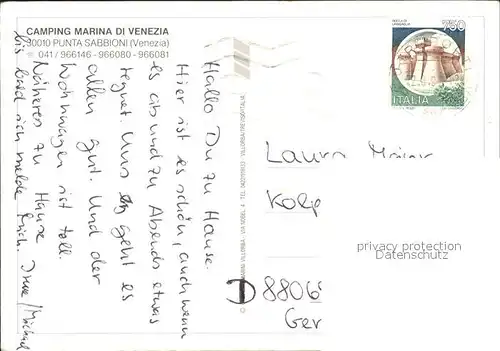 CAMPING MARINA DI VENEZIA
30010 PUNTA SABBIONI (Venezia)
041 / 966146 - 966080 - 966081
750
ITALIA
Hallo Du zu Hause.
Hier ist es schön, auch wenn
es ab und zu Abends etwas
regnet. Uns geht es
allen gut. Und der
Wohnwagen ist toll.
Näheres zu Hause
bis bald ich melde mich. Irene / Michael
VIA NOBEL, 4
Laura
Kolp
D 8806
Ger
privacy protection
Datenschutz